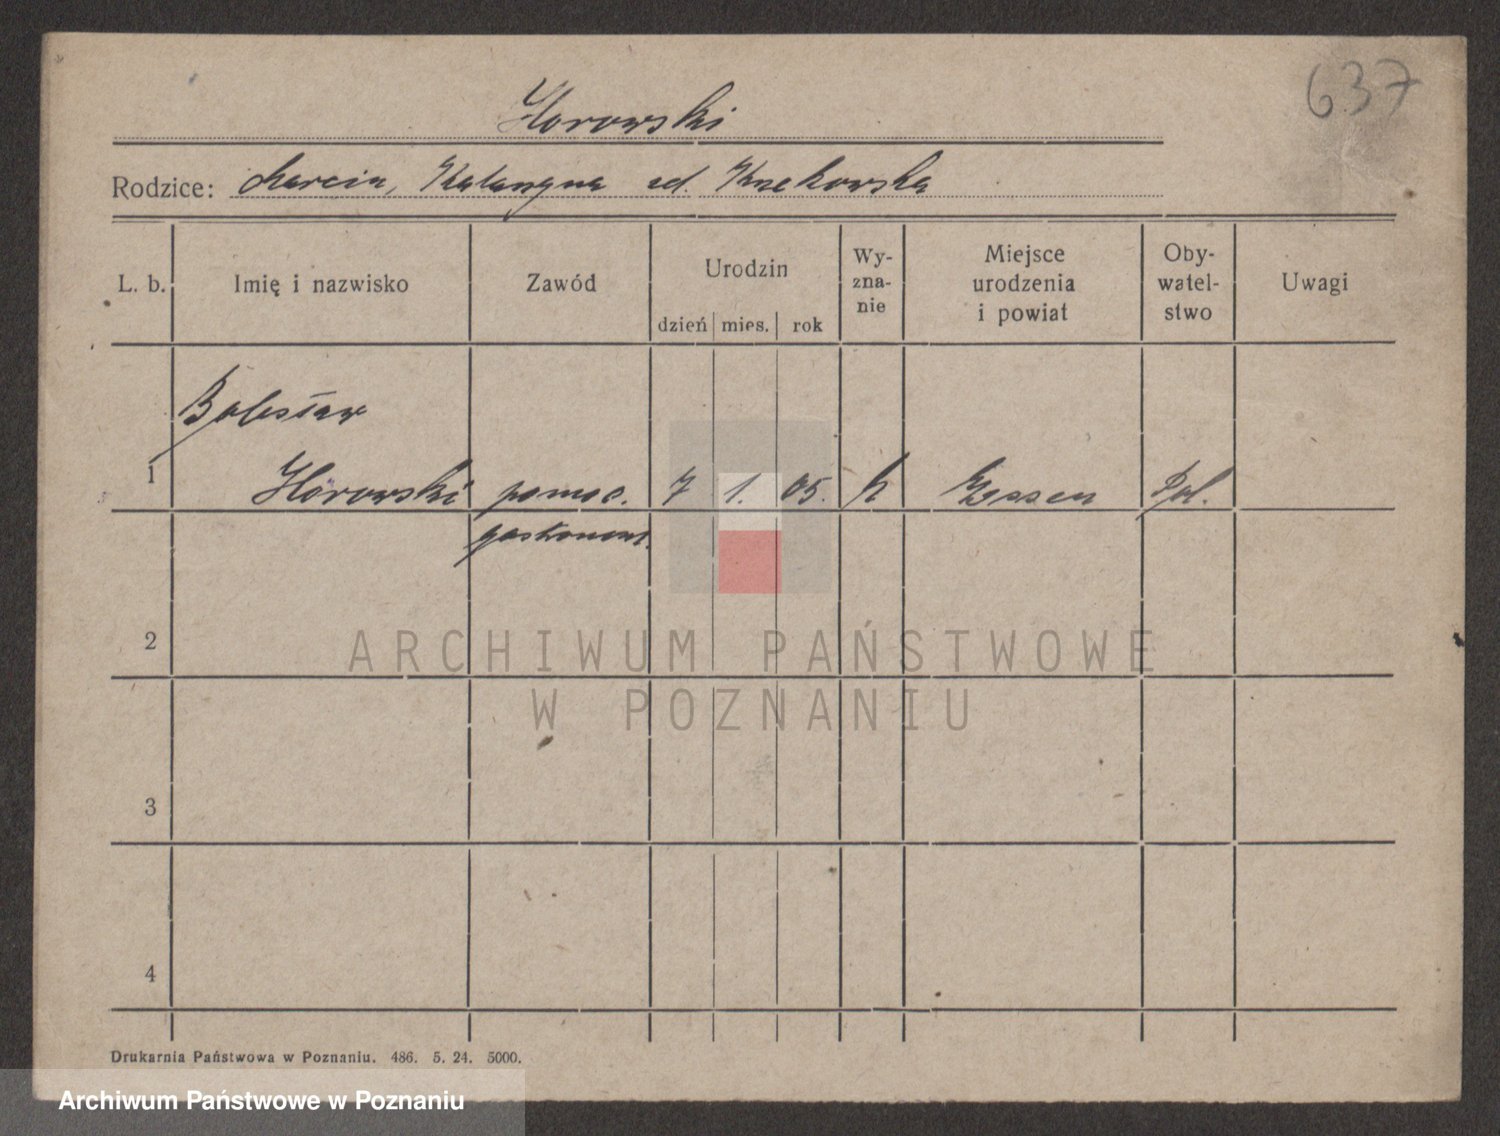 637
Horowski
Rodzice: Marcin, Katarzyna
L. b. Imię i nazwisko Zawód Urodzin dzień mies. rok Wy-zna-nie Miejsce urodzenia i powiat Oby-watel-stwo Uwagi
Bolesław
1 Horowski pomoc. 7 1. 05. k Essen Pol.
gastronom.
2
3
4
ARCHIWUM PAŃSTWOWE
W POZNANIU
Drukarnia Państwowa w Poznaniu. 486. 5. 24. 5000.
Archiwum Państwowe w Poznaniu